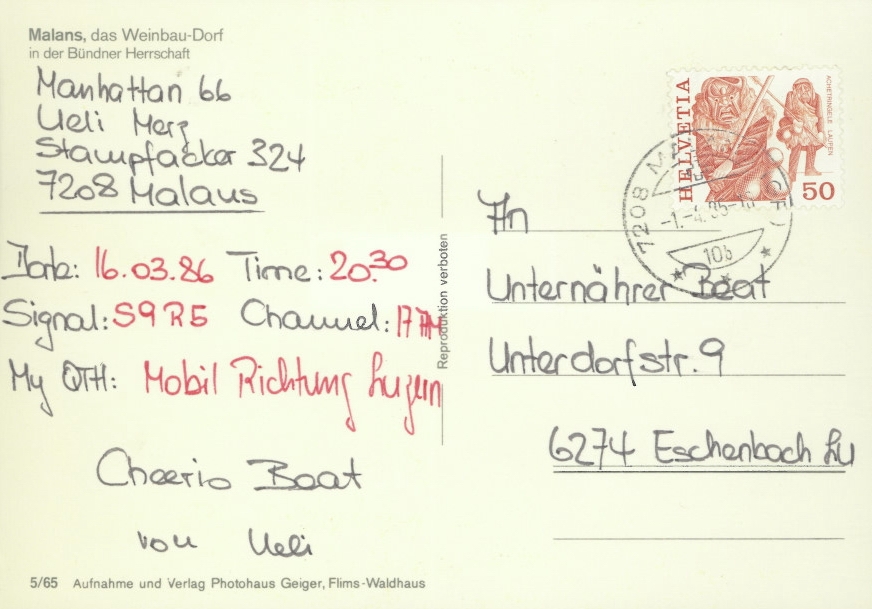 Malans, das Weinbau-Dorf
in der Bündner Herrschaft
Manhattan 66
Ueli Merz
Stampfacker 324
7208 Malans
Date: 16.03.86 Time: 20.30
Signal: S9 R5 Channel: 17 AM
My QTH: Mobil Richtung Luzern
Cheerio Beat
von Ueli
5/65 Aufnahme und Verlag Photohaus Geiger, Flims-Waldhaus
Reproduktion verboten
HELVETIA
ACHETRINGELE LAUPEN
50
7208
An
Unternährer Beat
Unterdorfstr. 9
6274 Eschenbach Lu